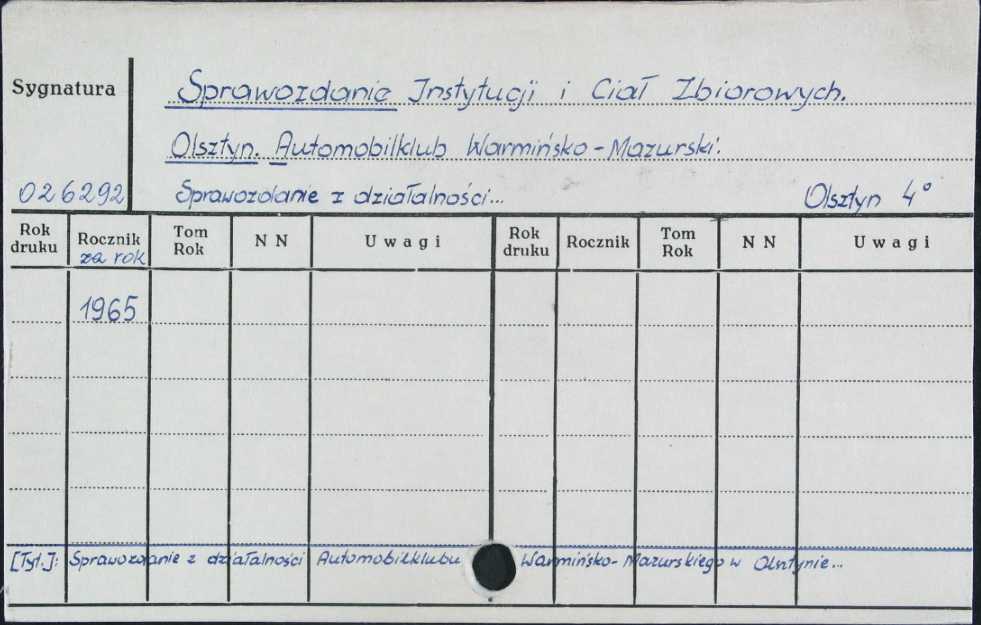 Sygnatura
Sprawozdanie Instytucji i Ciał Zbiorowych.
Olsztyn. Automobilklub Warmińsko-Mazurski.
026292 Sprawozdanie z działalności... Olsztyn 4°
Rok druku Rocznik za rok Tom Rok N N Uwagi Rok druku Rocznik Tom Rok N N Uwagi
1965
[Tyt.]: Sprawozdanie z działalności Automobilklubu Warmińsko-Mazurskiego w Olsztynie...